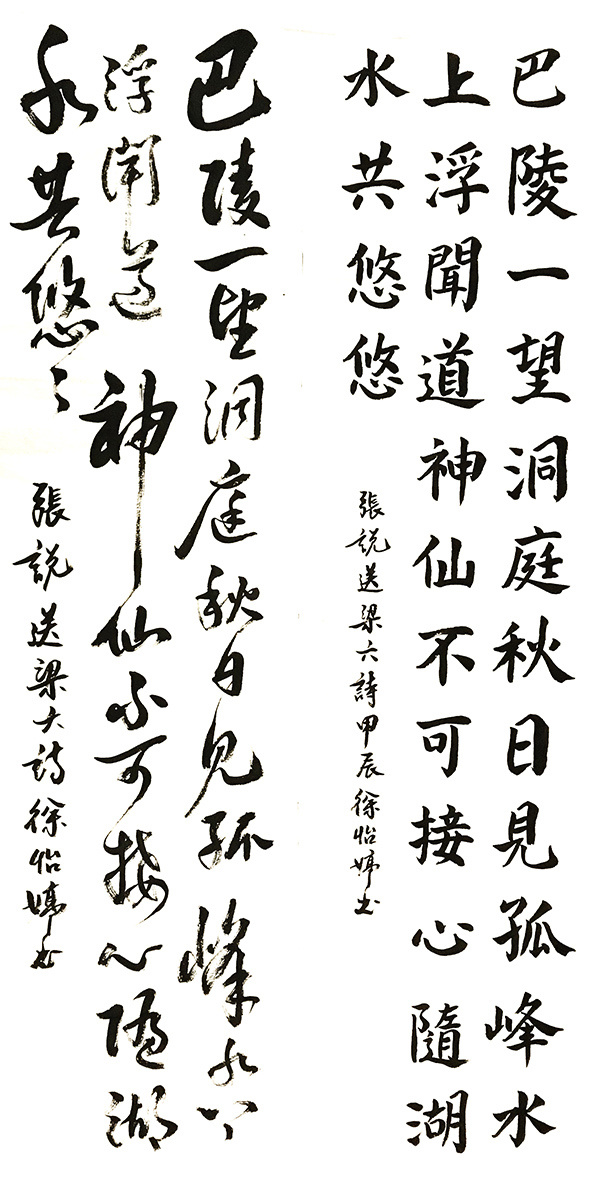 巴陵一望洞庭秋日見孤峰水
上浮聞道神仙不可接心隨湖
水共悠悠
張説送梁六詩甲辰徐怡书
巴陵一望洞庭秋日見孤峰水上
浮聞道神仙不可接心隨湖
水共悠〻
張説送梁六詩徐怡书